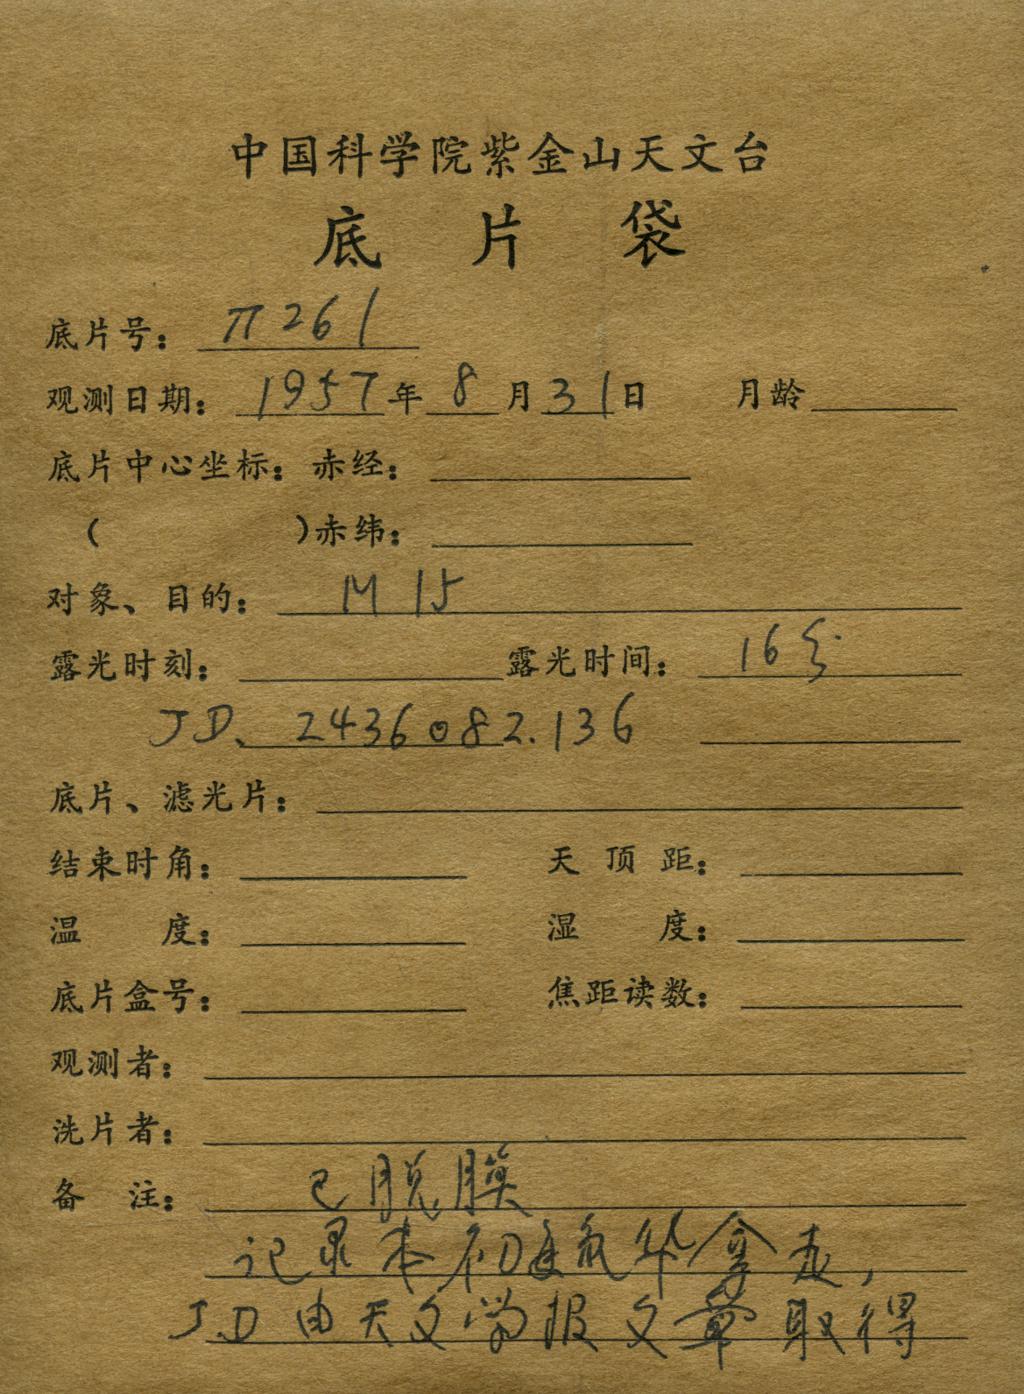 中国科学院紫金山天文台
底片袋
底片号： π261
观测日期： 1957年8月31日 月龄
底片中心坐标：赤经：
( )赤纬：
对象、目的： M 15
露光时刻： 露光时间： 16分
JD. 2436082.136
底片、滤光片：
结束时角： 天顶距：
温度： 湿度：
底片盒号： 焦距读数：
观测者：
洗片者：
备注： 已脱膜
记录本初 华拿走，
JD由天文学报文章取得